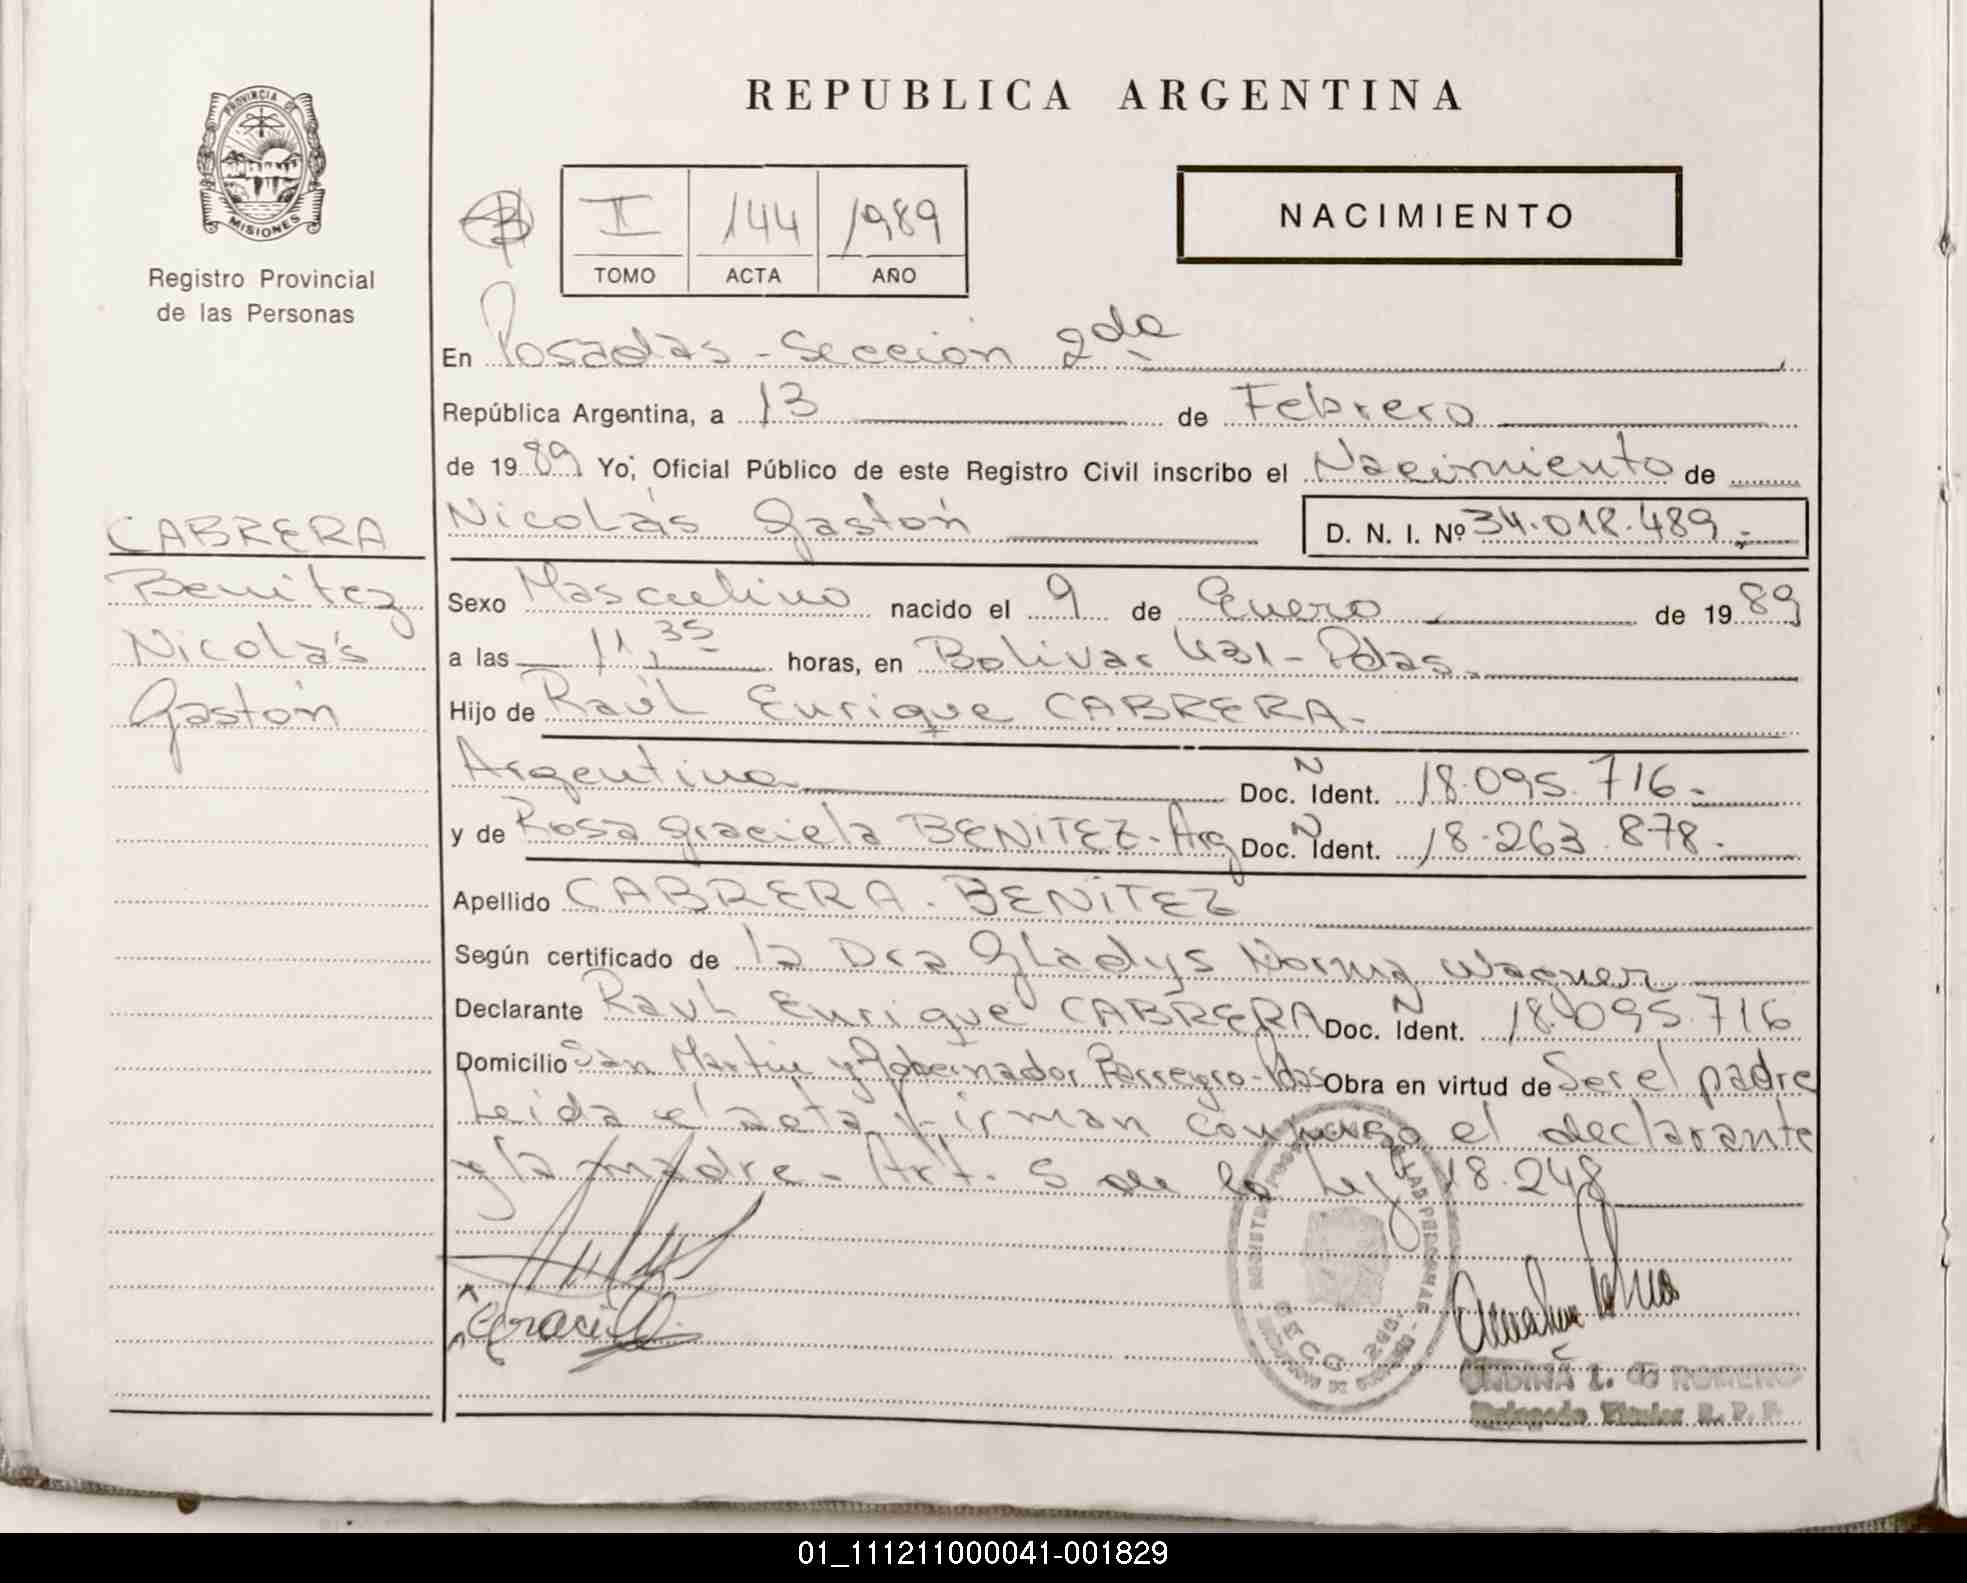 REPUBLICA ARGENTINA
PROVINCIA DE
MISIONES
Registro Provincial
de las Personas
II 144 1989
TOMO ACTA AÑO
NACIMIENTO
En Posadas - Sección 2da
República Argentina, a 13 de Febrero
de 1989 Yo, Oficial Público de este Registro Civil inscribo el Nacimiento de
Nicolás Gastón D. N. I. Nº 34.018.489.-
CABRERA
Benitez
Nicolás
Gastón
Sexo Masculino nacido el 9 de Enero de 1989
a las 11,35 horas, en Bolivar 431 - Pdas.
Hijo de Raúl Enrique CABRERA.
Argentino Doc. N Ident. 18.095.716.-
y de Rosa Graciela BENITEZ - Arg Doc. N Ident. 18.263.878.-
Apellido CABRERA - BENITEZ
Según certificado de la Dra Gladys Norma Wagner
Declarante Raul Enrique CABRERA Doc. N Ident. 18.095.716
Domicilio San Martin y Gobernador Barreyro - Pdas Obra en virtud de Ser el padre
Leida el acta firman conmigo el declarante
y la madre - Art. 5 de la Ley 18.248
L. de ROMERO
Titular R. P. P.
01_111211000041-001829